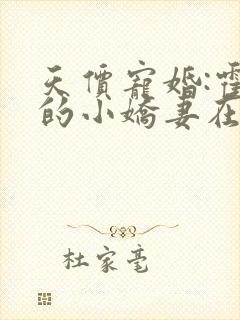 天價寵婚:霍
的小嬌妻在
杜家毫